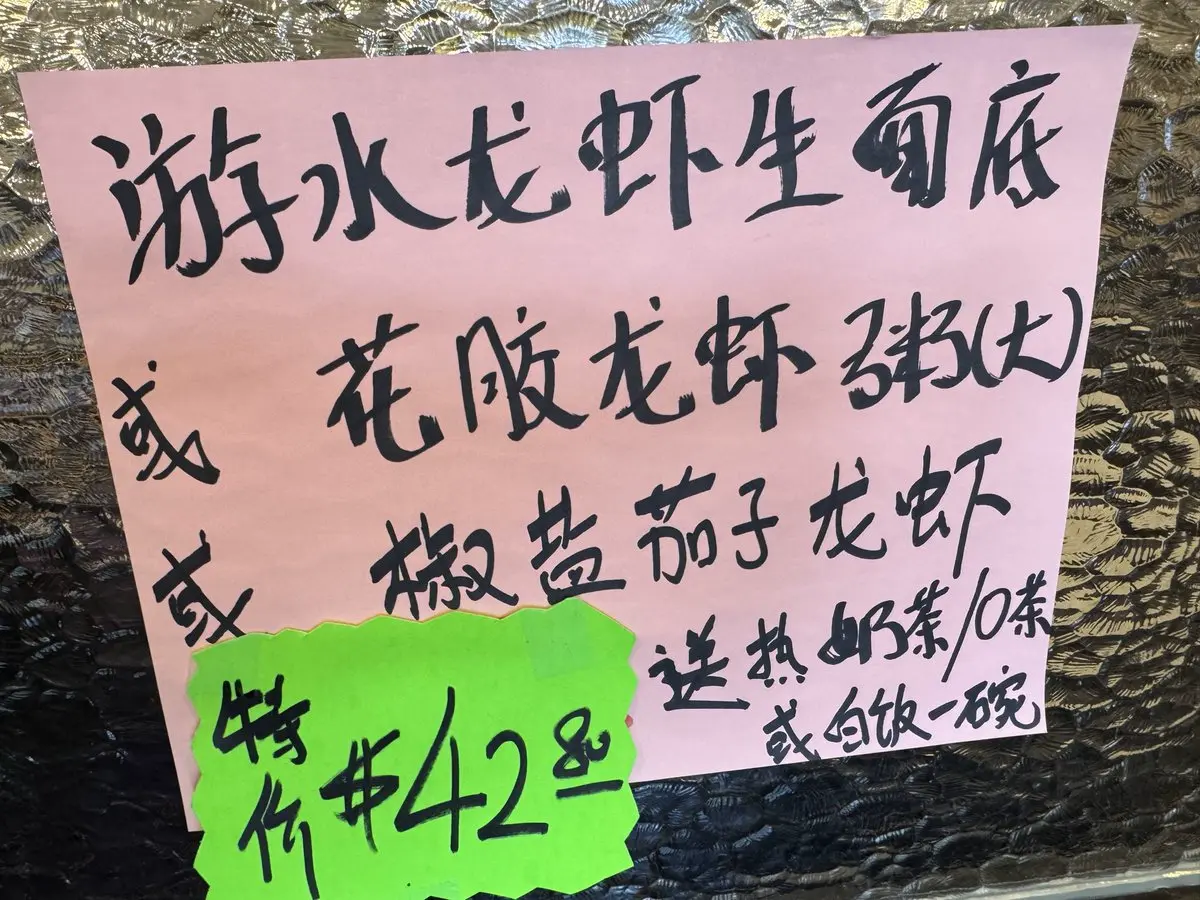 游水龙虾生面底
或 花胶龙虾粥(大)
或 椒盐茄子龙虾
送热奶茶/0茶
或白饭一碗
特价 $42.80